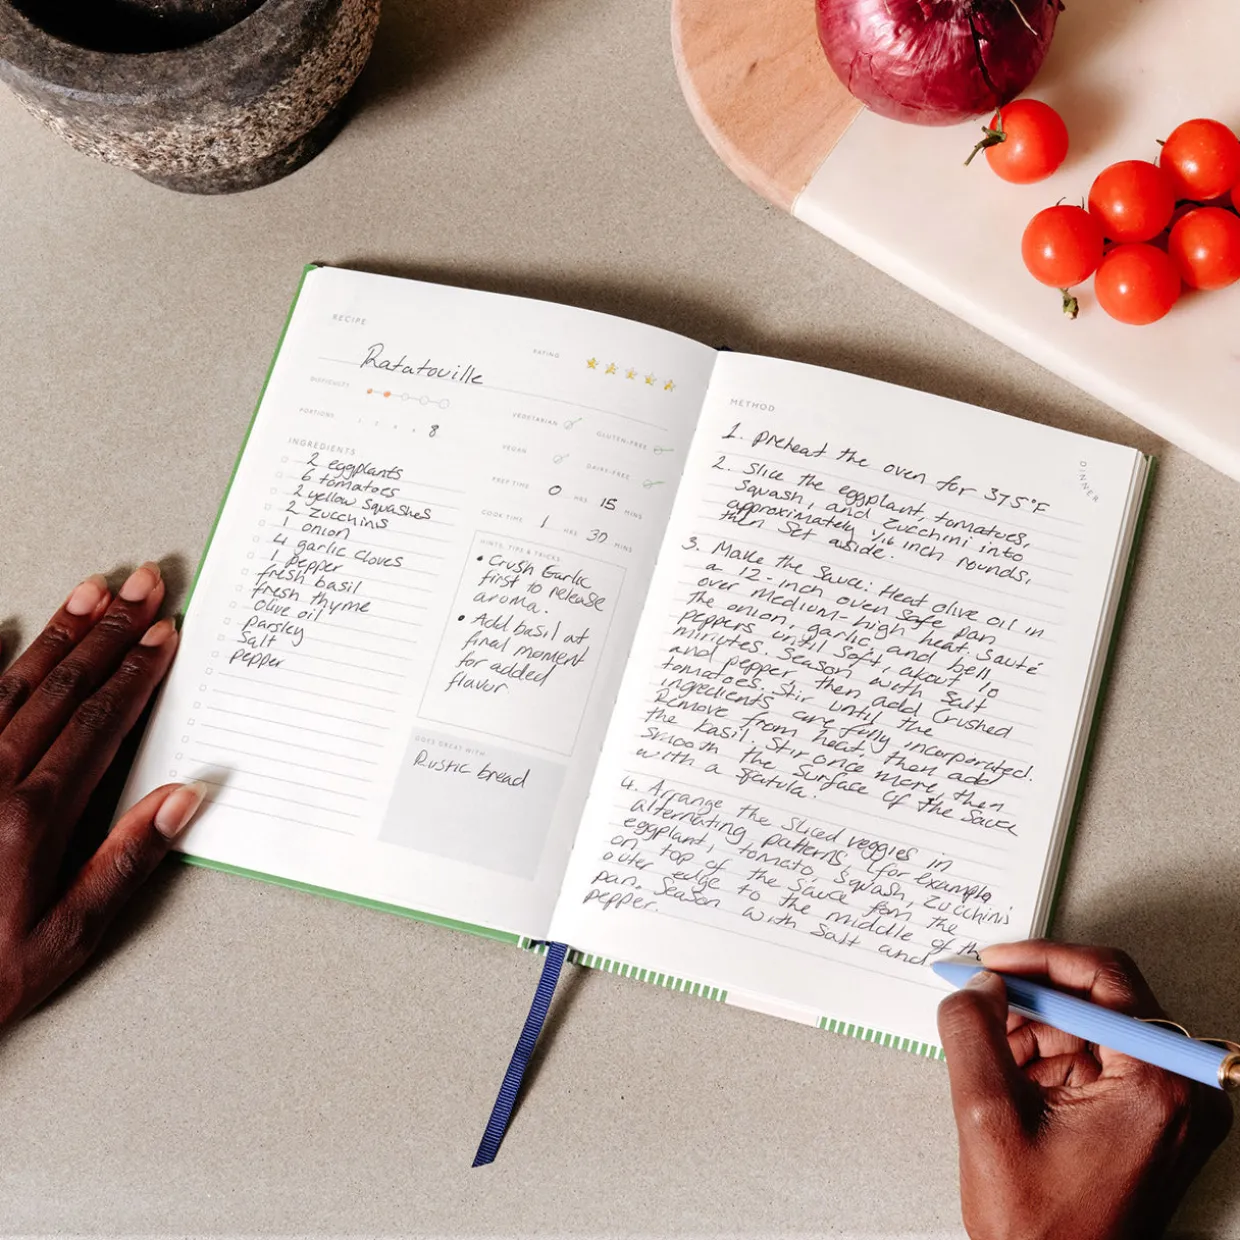 RECIPE
Ratatouille
RATING
DIFFICULTY
PORTIONS 1 2 4 6 8
VEGETARIAN
GLUTEN-FREE
VEGAN
DAIRY-FREE
PREP TIME 0 HRS 15 MINS
COOK TIME 1 HRS 30 MINS
INGREDIENTS
2 eggplants
6 tomatoes
2 yellow squashes
2 zucchinis
1 onion
4 garlic cloves
1 pepper
fresh basil
fresh thyme
olive oil
parsley
Salt
pepper
HINTS, TIPS & TRICKS
• Crush Garlic
first to release
aroma.
• Add basil at
final moment
for added
flavur
GOES GREAT WITH
Rustic bread
METHOD
DINNER
1. preheat the oven for 375°F
2. Slice the eggplant, tomatoes,
squash, and zucchini into
approximately 1/16 inch rounds,
then set aside.
3. Make the sauce: Heat olive oil in
a 12-inch oven safe pan
over medium-high heat. Sauté
the onion, garlic, and bell
peppers until soft, about 10
minutes. Season with salt
and pepper, then add crushed
tomatoes. Stir until the
ingredients are fully incorporated.
Remove from heat, then add
the basil. Stir once more, then
smooth the surface of the sauce
with a spatula.
4. Arrange the sliced veggies in
alternating patterns, (for example,
eggplant, tomato, squash, zucchini)
on top of the sauce from the
outer edge to the middle of the
pan. Season with salt and
pepper.